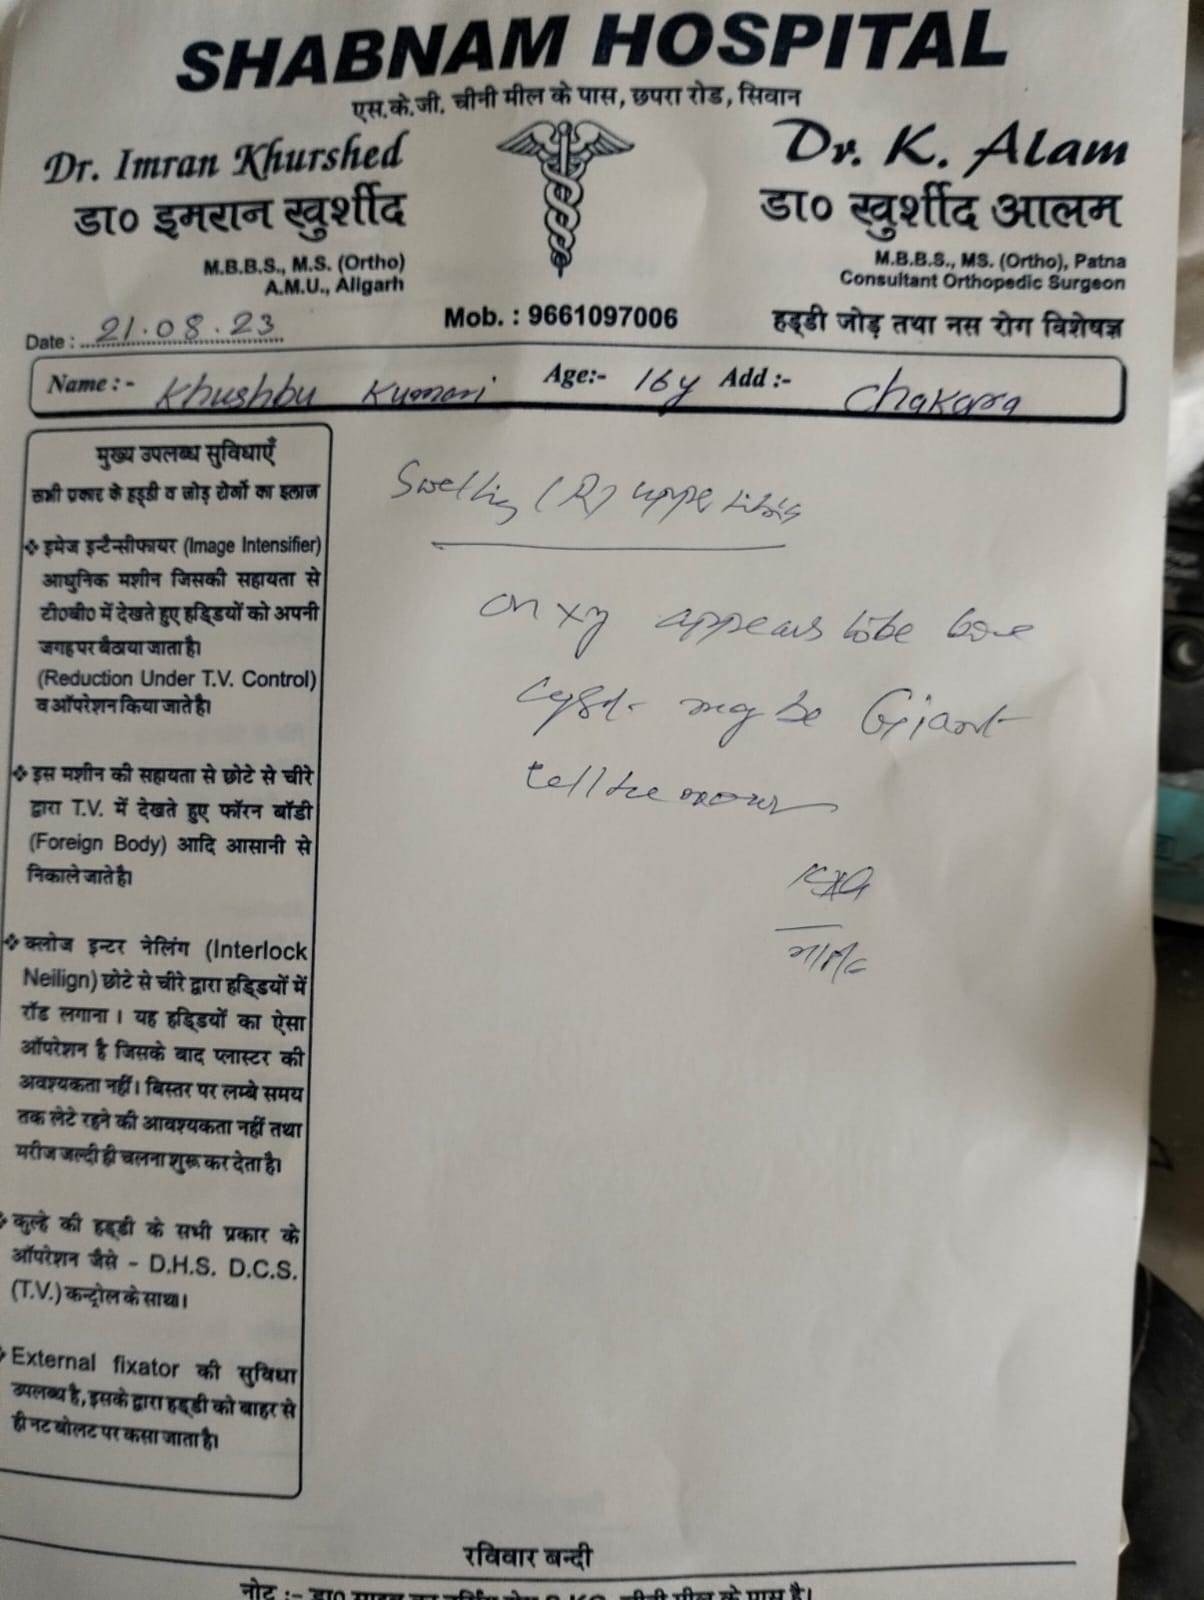 SHABNAM HOSPITAL
एस.के.जी. चीनी मील के पास, छपरा रोड, सिवान
Dr. Imran Khurshed
डा० इमरान खुर्शीद
M.B.B.S., M.S. (Ortho)
A.M.U., Aligarh
Dr. K. Alam
डा० खुर्शीद आलम
M.B.B.S., MS. (Ortho), Patna
Consultant Orthopedic Surgeon
हड्डी जोड़ तथा नस रोग विशेषज्ञ
Mob. : 9661097006
Date : 21.08.23
Name :- Khushbu Kumari Age:- 16y Add :- Chakara
मुख्य उपलब्ध सुविधाएँ
सभी प्रकार के हड्डी व जोड़ रोगों का इलाज
❖ इमेज इन्टैन्सीफायर (Image Intensifier)
आधुनिक मशीन जिसकी सहायता से
टी०बी० में देखते हुए हड्डियों को अपनी
जगह पर बैठाया जाता है।
(Reduction Under T.V. Control)
व ऑपरेशन किया जाते है।
❖ इस मशीन की सहायता से छोटे से चीरे
द्वारा T.V. में देखते हुए फॉरन बॉडी
(Foreign Body) आदि आसानी से
निकाले जाते है।
❖ क्लोज इन्टर नेलिंग (Interlock
Neilign) छोटे से चीरे द्वारा हड्डियों में
रॉड लगाना । यह हड्डियों का ऐसा
ऑपरेशन है जिसके बाद प्लास्टर की
अवश्यकता नहीं। बिस्तर पर लम्बे समय
तक लेटे रहने की आवश्यकता नहीं तथा
मरीज जल्दी ही चलना शुरू कर देता है।
कुल्हे की हड्डी के सभी प्रकार के
ऑपरेशन जैसे - D.H.S. D.C.S.
(T.V.) कन्ट्रोल के साथ।
External fixator की सुविधा
उपलब्ध है, इसके द्वारा हड्डी को बाहर से
ही नट बोलट पर कसा जाता है।
Swelling (R) upper tibia
on xy appears to be bone
cyst- may be Giant
cell
रविवार बन्दी
नोट :- डा० साहब का नर्सिंग होम S.KG. चीनी मील के पास है।